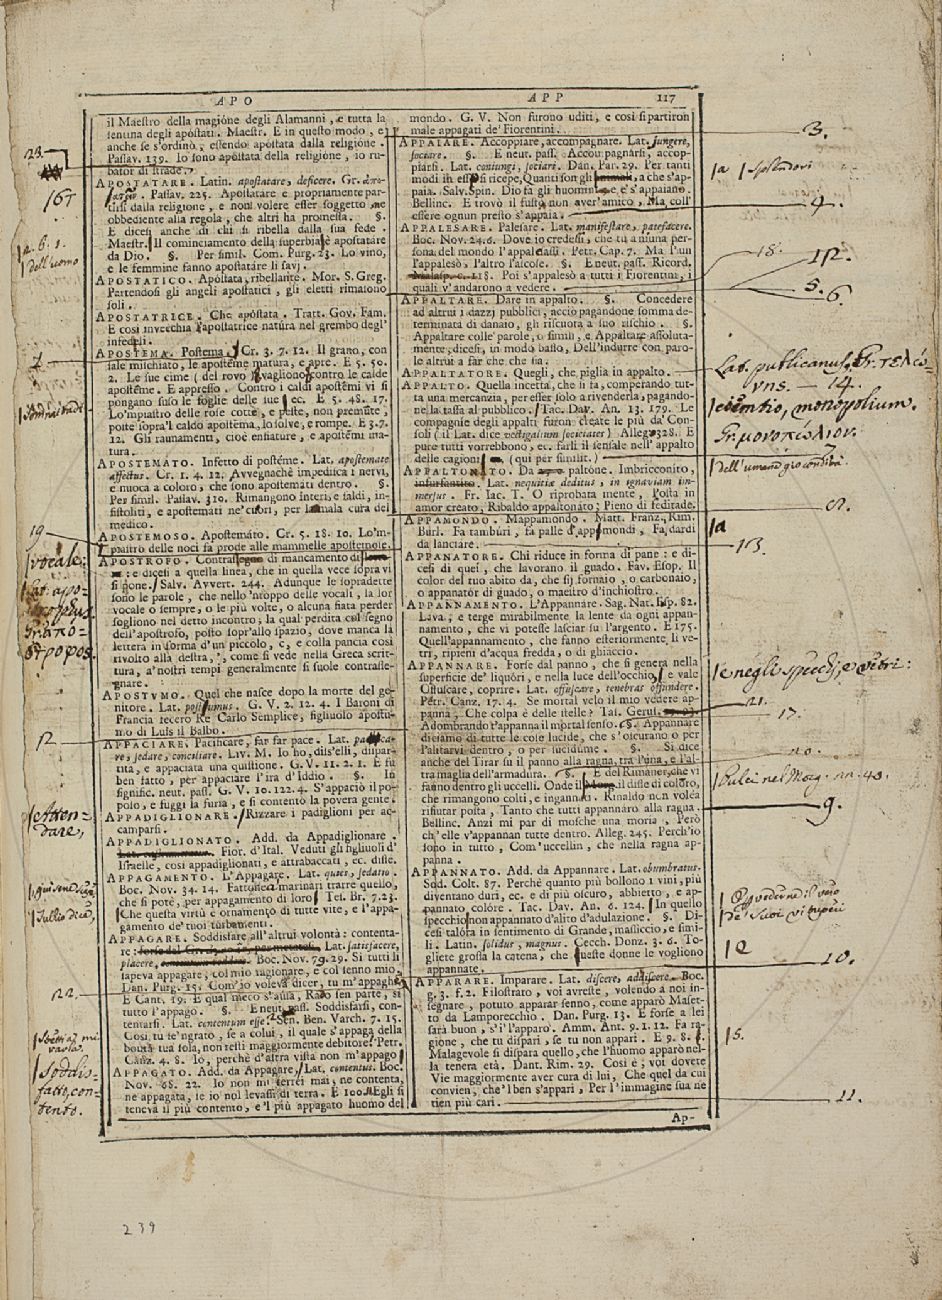 APO
APP 117
il Maeſtro della magióne degli Alamanni, e tutta la
ſentuna degli apóſtati. Maeſtr. E in queſto modo, e
anche ſe s'ordinò, eſſendo apóſtata dalla religióne.
Paſſav. 139. Io ſono apóſtata della religióne, io ru-
bator di ſtrade.
APOSTATARE. Latin. apoſtatare, deficere. Gr.
Paſſav. 225. Apoſtatare è propriamente par-
tirſi dalla religióne, e non volere eſſer ſoggetto, ne
obbediente alla regola, che altri ha promeſſa. §.
E diceſi anche di chi ſi ribella dalla ſua fede.
Maeſtr. Il cominciamento della ſuperbia è apoſtatare
da Dio. §. Per ſimil. Com. Purg. 23. Lo vino,
e le femmine fanno apoſtatare li ſavj.
APOSTATICO. Apóſtata, ribellante. Mor. S. Greg.
Partendoſi gli angeli apoſtatici, gli eletti rimaſono
ſoli.
APOSTATRICE. Che apóſtata. Tratt. Gov. Fam.
E così invecchia l'apoſtatrice natura nel grembo degl'
infedeli.
APOSTEMA. Poſtema. Cr. 3. 7. 12. Il grano, con
ſale miſchiato, le apoſtéme matura, e apre. E 5. 50.
2. Le ſue cime (del rovo) vagliono contro le calde
apoſtéme. E appreſſo. Contro i caldi apoſtémi vi ſi
pongano ſuſo le foglie delle ſue ec. E 5. 48. 17.
Lo'mpiaſtro delle roſe cotte, e peſte, non premute,
poſte ſopra'l caldo apoſtéma, lo ſolve, e rompe. E 3. 7.
12. Gli raunamenti, cioè enfiature, e apoſtémi ma-
tura.
APOSTEMATO. Infetto di poſtéme. Lat. apoſtemate
affectus. Cr. 1. 4. 12. Avvegnachè impedíſca i nervi,
e nuoca a coloro, che ſono apoſtemati dentro. §.
Per ſimil. Paſſav. 310. Rimangono interi, e ſaldi, in-
fiſtoliti, e apoſtemati ne'cuori, per la mala cura del
medico.
APOSTEMOSO. Apoſtemato. Cr. 5. 18. 10. Lo'm-
piaſtro delle noci fa prode alle mammelle apoſtemoſe.
APOSTROFO. Contraſſegno di mancamento di
: e diceſi a quella linea, che in quella vece ſopra vi
ſi pone. Salv. Avvert. 244. Adunque le ſopradette
ſono le parole, che nello'ntoppo delle vocali, la lor
vocale o ſempre, o le più volte, o alcuna fiata perder
ſogliono nel detto incontro; la qual perdita col ſegno
dell'apoſtrofo, poſto ſopr'allo ſpazio, dove manca la
lettera in forma d'un piccolo, c, e colla pancia così
rivolto alla deſtra,', come ſi vede nella Greca ſcrit-
tura, a'noſtri tempi generalmente ſi ſuole contraſſe-
gnare.
APOSTVMO. Quel che naſce dopo la morte del ge-
nitore. Lat. poſthumus. G. V. 2. 12. 4. I Baroni di
Francia fecero Re Carlo Semplice, figliuolo apoſtu-
mo di Luis il Balbo.
APPACIARE. Pacificare, far far pace. Lat.
re, ſedare, conciliare. Liv. M. Io ho, diſs'elli, diſpar-
tita, e appaciata una quiſtione. G. V. 11. 2. 1. E fu
ben fatto, per appaciare l'ira d'Iddio. §. In
ſignific. neut. paſſ. G. V. 10. 122. 4. S'appaciò il po-
polo, e fuggì la furia, e ſi contentò la povera gente.
APPADIGLIONARE. Rizzare i padiglioni per ac-
camparſi.
APPADIGLIONATO. Add. da Appadiglionare.
Fior. d'Ital. Veduti gli figliuoli d'
Iſraelle, così appadiglionati, e attrabaccati, ec. diſſe.
APPAGAMENTO. L'Appagare. Lat. quies, ſedatio.
Boc. Nov. 34. 14. Fattoſi ca' marinari trarre quello,
che ſi potè, per appagamento di loro. Teſ. Br. 7. 23.
Che queſta virtù è ornamento di tutte vite, e l'appa-
gamento de'tuoi turbamenti.
APPAGARE. Soddisfare all'altrui volontà: contenta-
re: Lat. ſatisfacere,
placere, Boc. Nov. 79. 29. Si tutti li
ſapeva appagare, col mio ragionare, e col ſenno mio.
Dan. Purg. 15. Com'io voleva dicer, tu m'appaghe
E Cant. 19. E qual meco s'auſa, Rado ſen parte, sì
tutto l'appago. §. E neut. paſſ. Soddisfarſi, con-
tentarſi. Lat. contentum eſſe. Sen. Ben. Varch. 7. 15.
Così, tu ſe'ngrato, ſe a colui, il quale s'appaga della
bontà tua ſola, non reſti maggiormente debitore. Petr.
Canz. 4. 8. Io, perchè d'altra viſta non m'appago
APPAGATO. Add. da Appagare. Lat. contentus. Boc.
Nov. 68. 22. Io non mi terrei mai, ne contenta,
ne appagata, ſe io nol levaſſi di terra. E 100. Egli ſi
teneva il più contento, e'l più appagato huomo del
mondo. G. V. Non furono uditi, e così ſi partiron
male appagati de'Fiorentini.
APPAIARE. Accoppiare, accompagnare. Lat. jungere,
ſociare. §. E neut. paſſ. Accompagnarſi, accop-
piarſi. Lat. coniungi, ſociari. Dan. Par. 29. Per tanti
modi in eſſo ſi ricepe, Quanti ſon gli, a che s'ap-
paia. Salv. Spin. Dio fa gli huomini, e s'appaiano.
Bellinc. E trovò il fuſto non aver'amico, Ma coll'
eſſere ognun preſto s'appaia.
APPALESARE. Paleſare. Lat. manifeſtare, patefacere.
Boc. Nov. 24. 6. Dove io credeſſi, che tu a niuna per-
ſona del mondo l'appaleſaſſi. Petr. Cap. 7. Ma l'un
l'appaleſò, l'altro l'aſcoſe. §. E neut. paſſ. Ricord.
118. Poi s'appaleſò a tutti i Fiorentini, i
quali v'andarono a vedere.
APPALTARE. Dare in appalto. §. Concedere
ad altrui i dazzj pubblici, acciò pagandone ſomma de-
terminata di danaio, gli riſcuota a ſuo riſchio. §.
Appaltare colle'parole, o ſimili, e Appaltare aſſoluta-
mente, diceſi, in modo baſſo, Dell'indurre con paro-
le altrui a far che che ſia.
APPALTATORE. Quegli, che piglia in appalto.
APPALTO. Quella incetta, che ſi fa, comperando tut-
ta una mercanzia, per eſſer ſolo a rivenderla, pagando-
ne la taſſa al pubblico. Tac. Dav. An. 13. 179. Le
compagnie degli appalti furon create le più da'Con-
ſoli (il Lat. dice vectigalium ſocietates) Alleg. 328. E
pure tutti vorrebbono, ec. farſi il ſenſale nell'appalto
delle cagioni (qui per ſimilit.)
APPALTONATO. Da paltóne. Imbricconito,
infurfantito. Lat. nequitiæ deditus, in ignaviam im-
merſus. Fr. Iac. T. O riprobata mente, Poſta in
amor creato, Ribaldo appaltonato; Pieno di feditade.
APPAMONDO. Mappamondo. Matt. Franz. Rim.
Burl. Fa tambúri, fa palle d'appamondi, Fa dardi
da lanciare.
APPANATORE. Chi riduce in forma di pane: e di-
ceſi di quei, che lavorano il guado. Fav. Eſop. Il
color del tuo abito da, che ſij fornaio, o carbonaio,
o appanatór di guado, o maeſtro d'inchioſtro.
APPANNAMENTO. L'Appannare. Sag. Nat. Eſp. 82.
Lava, e terge mirabilmente la lente da ogni appan-
namento, che vi poteſſe laſciar ſu l'argento. E 175.
Quell'appannamento, che fanno eſteriormente li ve-
tri, ripieni d'acqua fredda, o di ghiaccio.
APPANNARE. Forſe dal panno, che ſi genera nella
ſuperficie de'liquóri, e nella luce dell'occhio, e vale
Offuſcare, coprire. Lat. offuſcare, tenebras offundere.
Petr. Canz. 17. 4. Se mortal velo il mio vedere ap-
panna, Che colpa è delle ſtelle? Taſ. Geruſ.
Adombrando t'appanna il mortal ſenſo. §. Appannare
diciamo di tutte le coſe lucide, che s'oſcurano o per
l'alitarvi dentro, o per ſucidume. §. Si dice
anche del Tirar ſu il panno alla ragna, tra l'una, e l'al-
tra maglia dell'armadura. §. E del Rimaner, che vi
fanno dentro gli uccelli. Onde il il diſſe di coloro,
che rimangono colti, e ingannati. Rinaldo non volea
rifiutar poſta, Tanto che tutti appannaro alla ragna.
Bellinc. Anzi mi par di moſche una moria, Però
ch'elle v'appannan tutte dentro. Alleg. 245. Perch'io
ſono in tutto, Com'uccellin, che nella ragna ap-
panna.
APPANNATO. Add. da Appannare. Lat. obumbratus.
Sod. Colt. 87. Perchè quanto più bollono i vini, più
diventano duri, ec. e di più oſcuro, abbietto, e ap-
pannato colóre. Tac. Dav. An. 6. 124. In quello
ſpecchio non appannato d'alito d'adulazione. §. Di-
ceſi talóra in ſentimento di Grande, maſſiccio, e ſimi-
li. Latin. ſolidus, magnus. Cecch. Donz. 3. 6. To-
gliete groſſa la catena, che queſte donne le vogliono
appannate.
APPARARE. Imparare. Lat. diſcere, addiſcere. Boc.
g. 3. f. 2. Filoſtrato, voi avreſte, volendo a noi in-
ſegnare, potuto apparar ſenno, come apparò Maſet-
to da Lamporecchio. Dan. Purg. 13. E forſe a lei
ſarà buon, s'i'l'apparò. Amm. Ant. 9. 1. 12. Fa ra-
gione, che tu diſpari, ſe tu non appari. E 9. 8.
Malagevole ſi diſpara quello, che l'huomo apparò nel-
la tenera età. Dant. Rim. 29. Così è; voi dovete
Vie maggiormente aver cura di lui, Che quel da cui
convien, che'l ben s'appari, Per l'immagine ſua ne
tien più cari.
Ap-
23.
7
19
vocale:
12
Atten-
dare,
22.
Soddis-
fatto, con-
tento.
3.
a
Splendori
4.
18.
12.
5.
6.
Lat. publicanus, Gr. τελώ-
νης. — 14.
emtio, monopolium.
Gr. μονοπώλιον.
8.
a
13.
e negli specchj, e vetri:
21.
17.
20.
Pulci nel Morg.
9.
10.
15.
11.
239